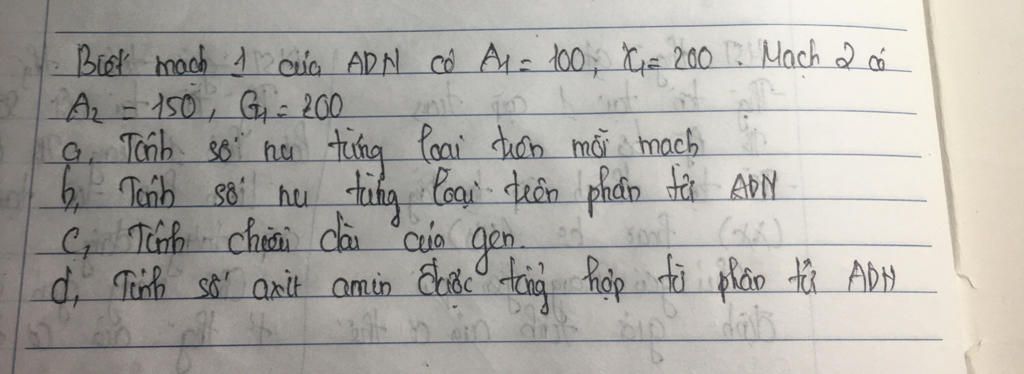 Biết mạch 1 của ADN có A1 = 100, X1 = 200. Mạch 2 có
A2 = 150, G1 = 200
a, Tính số nu từng loại trên mỗi mạch
b, Tính số nu từng loại trên phân tử ADN
c, Tính chiều dài của gen.
d, Tính số axit amin được tổng hợp từ phân tử ADN